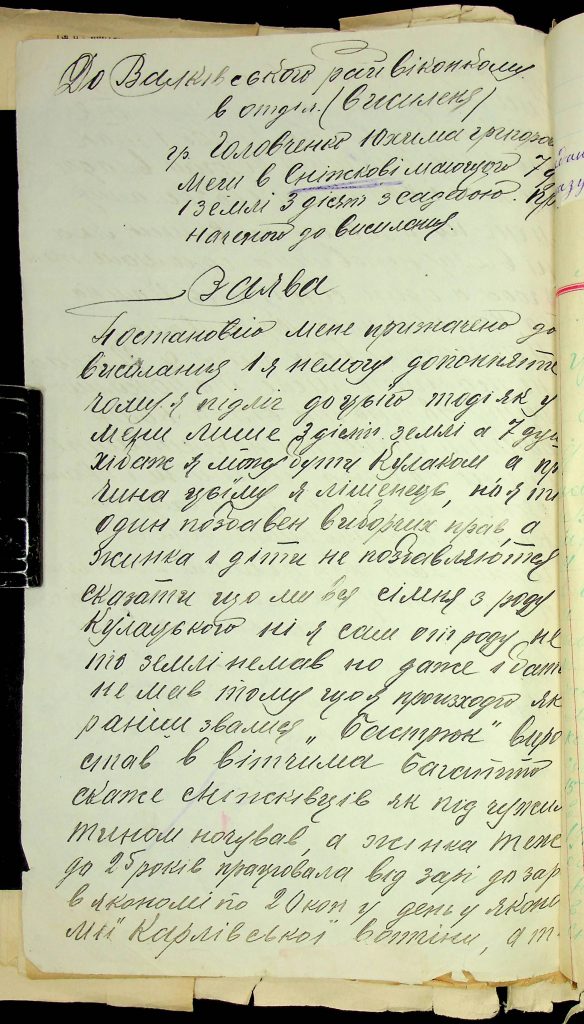 До Валківського райвіконкому
в отділ. (висиленя)
гр. Головченко Юхима григоров
меш в Сніжкові маючого 7 д
і землі 3 дісят з садибою. пр
наченого до висилания.
Заява
Постановою мене призначено до
висилания і я немогу допонняти
чому я підліг до цього тоді як у
мени лише 3 дісят. землі а 7 душ
хібаж я можу бути Кулаком а пр
чина цьому я лішенець, но я ти
один позбавен виборчих прав, а
жинка і діти не позбавляются
сказати що ми вся сімня з роду
Кулацького ні я сам от роду не
то землі немав но даже і бать
не мав тому що я происходю як
раніш звалися „бастрюк" виро
став в вітчима багатто
скаже сніжківців як під чужим
тином ночував, а жінка теж
до 25 років працювала від зарі до зар
в якономі по 20 коп у день у яконо
мії Карлівської вотчіни, а т